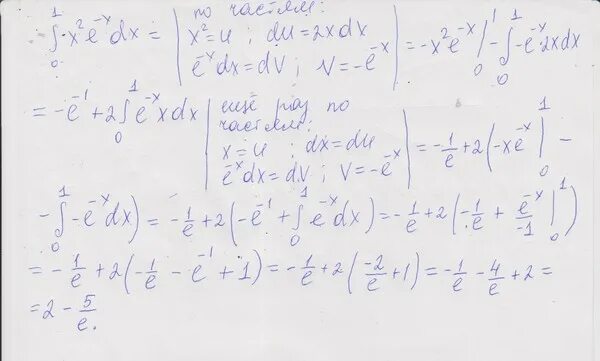 ∫₀¹ x²e⁻ˣdx = | по частям: x²=u ; du=2xdx e⁻ˣdx=dv ; v=-e⁻ˣ | = -x²e⁻ˣ|₀¹ - ∫₀¹ -e⁻ˣ2xdx
= -e⁻¹ + 2∫₀¹ e⁻ˣxdx | ещё раз по частям: x=u ; dx=du e⁻ˣdx=dv ; v=-e⁻ˣ | = -1/e + 2(-xe⁻ˣ|₀¹ -
- ∫₀¹ -e⁻ˣdx) = -1/e + 2(-e⁻¹ + ∫₀¹ e⁻ˣdx) = -1/e + 2(-1/e + e⁻ˣ/-1 |₀¹)
= -1/e + 2(-1/e - e⁻¹ + 1) = -1/e + 2(-2/e + 1) = -1/e - 4/e + 2 =
= 2 - 5/e.